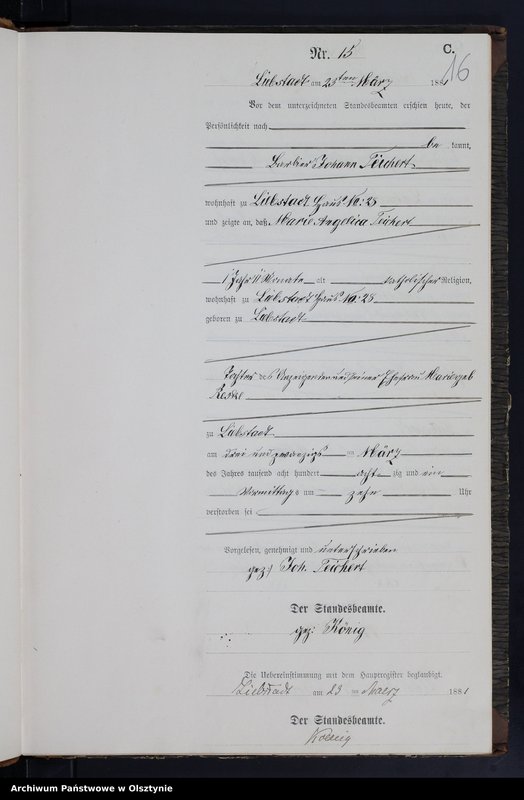 C.
16
Nr. 15
Liebstadt am 23ten März 1881
Vor dem unterzeichneten Standesbeamten erschien heute, der
Persönlichkeit nach
be kannt,
Barbier Johann Teichert
wohnhaft zu Liebstadt Haus No: 25
und zeigte an, daß Marie Angelica Teichert
1 Jahr 11 Monate alt katholischer Religion,
wohnhaft zu Liebstadt Haus No: 25
geboren zu Liebstadt
Tochter des Anzeigenden und seiner Ehefrau Marie geb
Reske
zu Liebstadt
am drei und zwanzigs ten März
des Jahres tausend acht hundert acht zig und ein
Vormittag s um zehn Uhr
verstorben sei
Vorgelesen, genehmigt und unterschrieben
gez: Joh. Teichert
Der Standesbeamte.
gez: König
Die Uebereinstimmung mit dem Hauptregister beglaubigt.
Liebstadt am 23 ten Maerz 1881
Der Standesbeamte.
Koenig
Archiwum Państwowe w Olsztynie